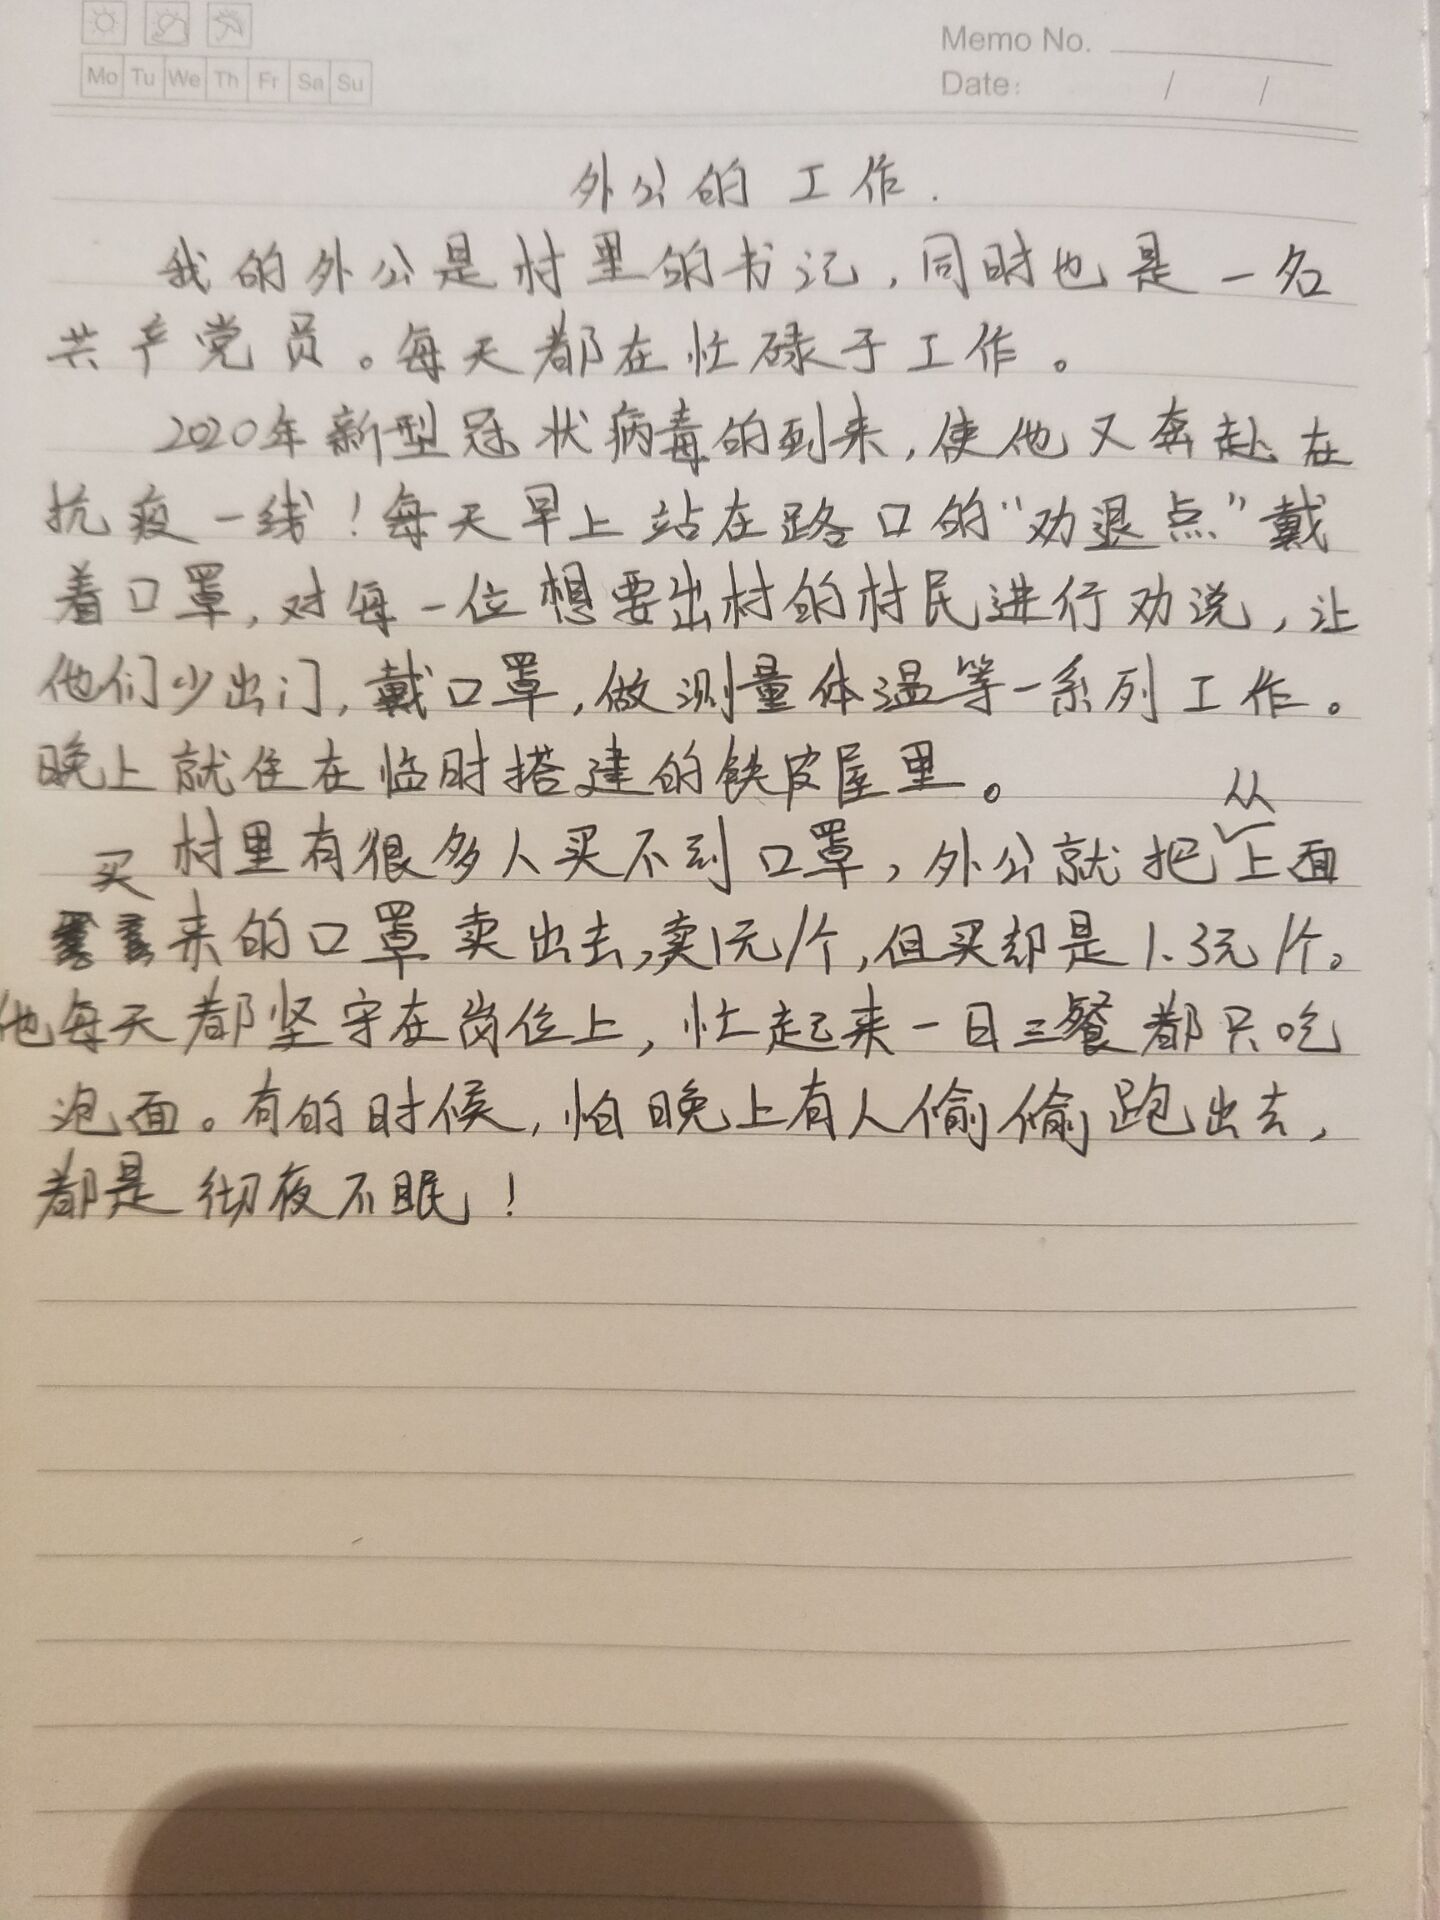 Memo No.
Mo Tu We Th Fr Sa Su
Date: / /
外公的工作.
我的外公是村里的书记,同时也是一名
共产党员。每天都在忙碌于工作。
2020年新型冠状病毒的到来,使他又奔赴在
抗疫一线!每天早上站在路口的“劝退点”戴
着口罩,对每一位想要出村的村民进行劝说,让
他们少出门,戴口罩,做测量体温等一系列工作。
晚上就住在临时搭建的铁皮屋里。
村里有很多人买不到口罩,外公就把从上面
买来的口罩卖出去,卖1元/个,但买却是1.3元/个。
他每天都坚守在岗位上,忙起来一日三餐都只吃
泡面。有的时候,怕晚上有人偷偷跑出去,
都是彻夜不眠!